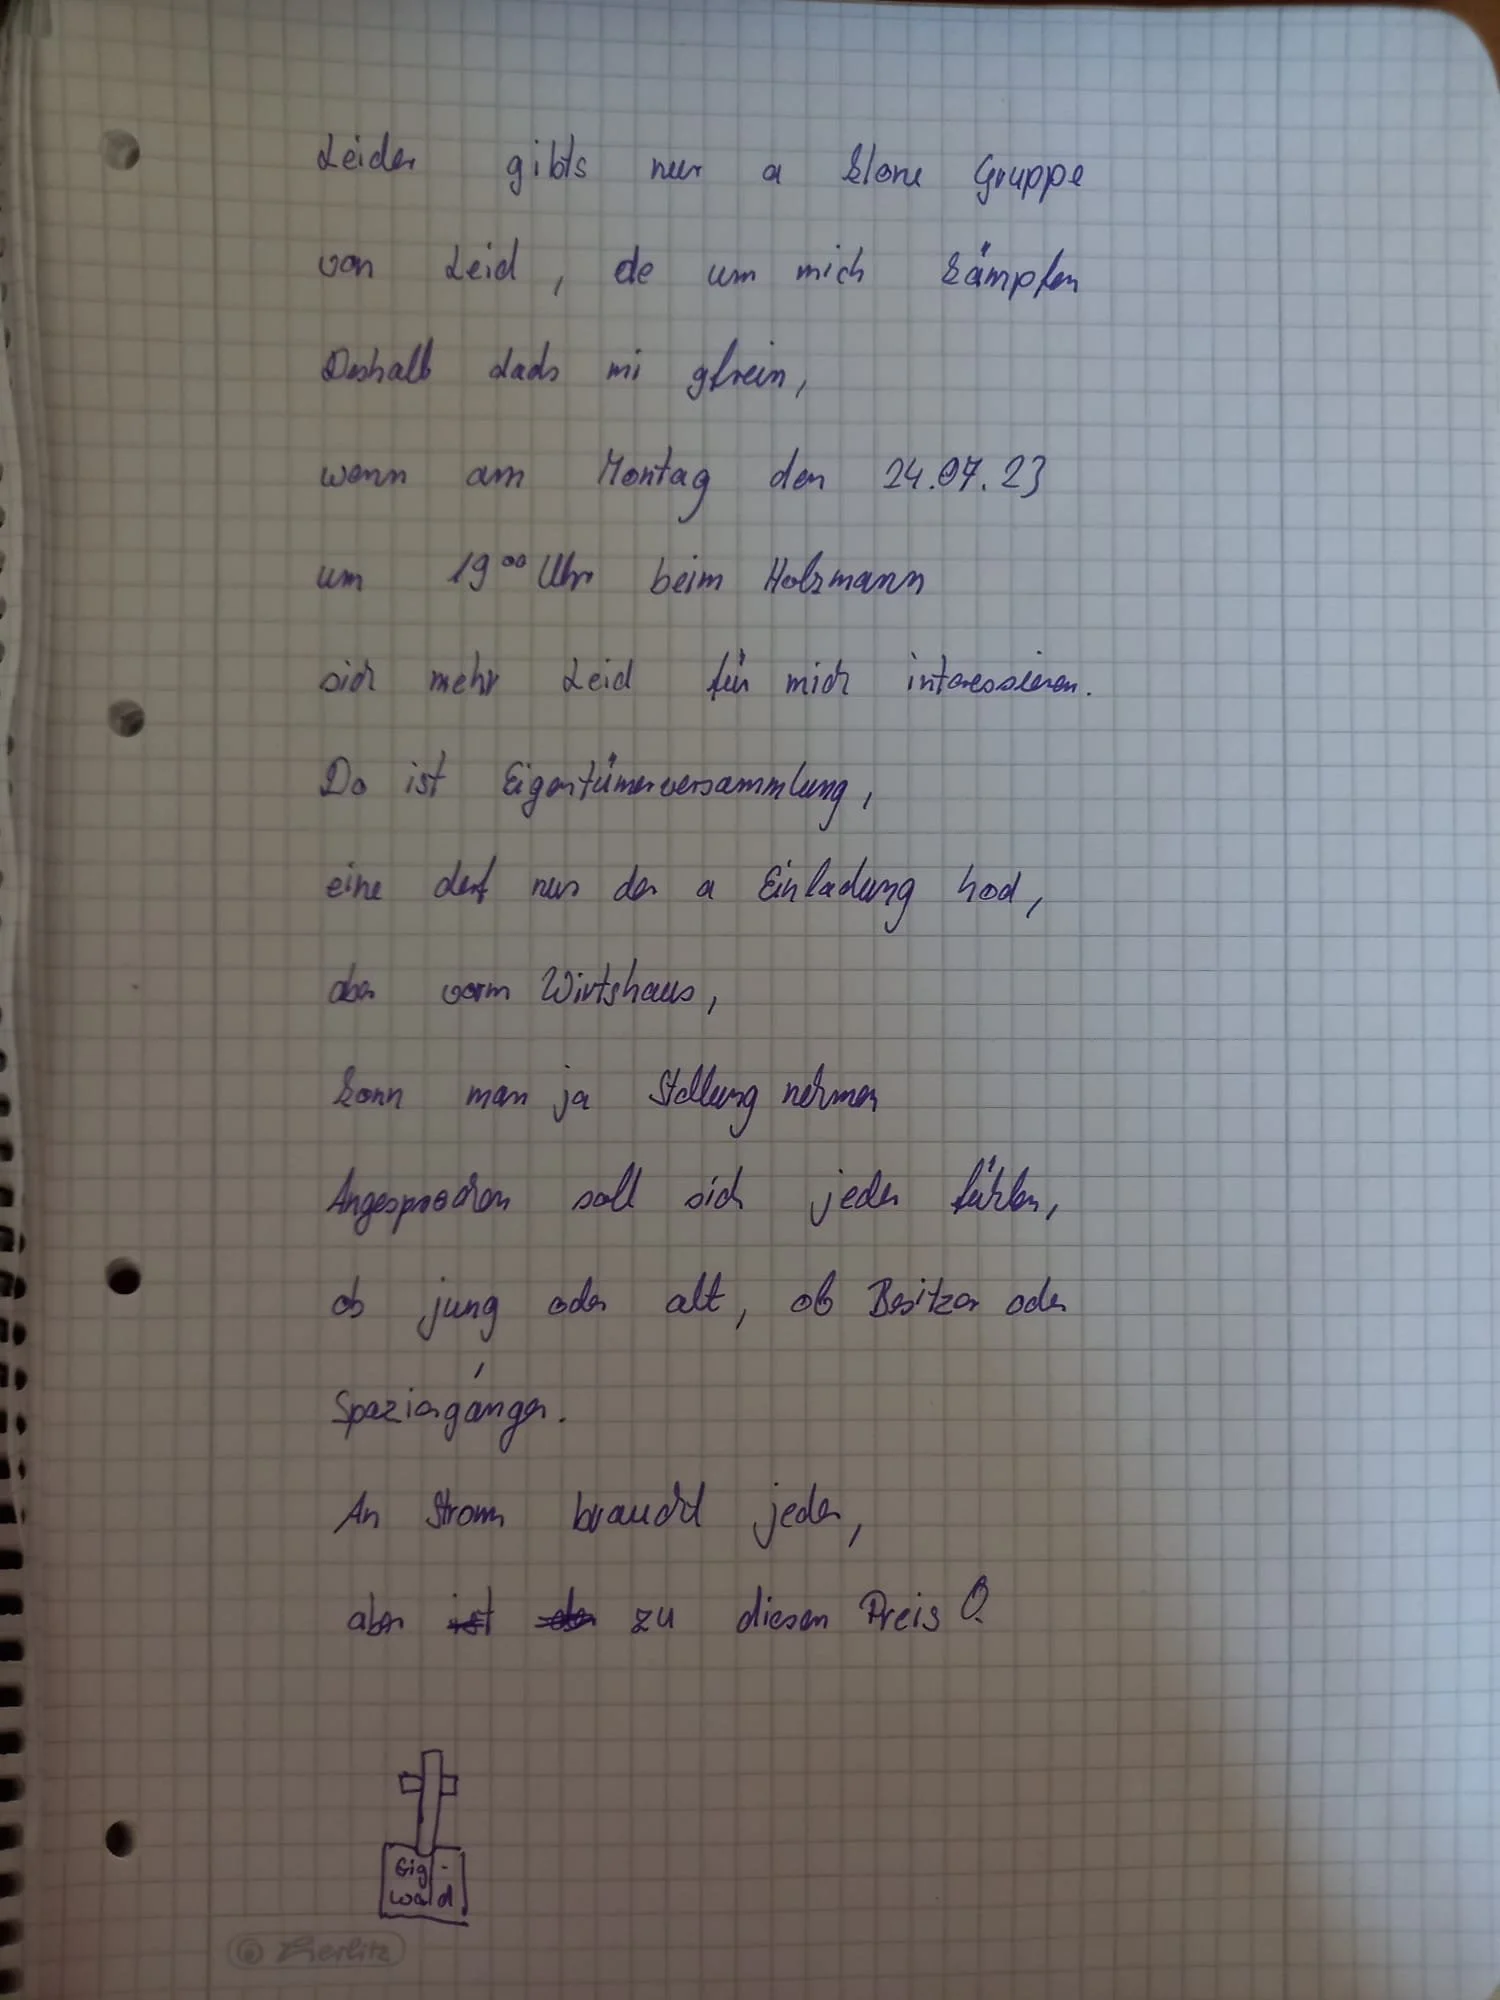 Leider gibts nur a klone Gruppe
von Leid, de um mich kämpfen
Deshalb dads mi gfrein,
wenn am Montag den 24.07.23
um 19⁰⁰ Uhr beim Holzmann
sich mehr Leid für mich interessieren.
Do ist Eigentümerversammlung,
eine derf nur der a Einladung hod,
aber vorm Wirtshaus,
konn man ja Stellung nehmen
Angesprochen soll sich jeder fühlen,
ob jung oder alt, ob Besitzer oder
Spaziergänger.
An Strom braucht jeder,
aber ist der zu diesen Preis?
Gig-
wald
Herlitz